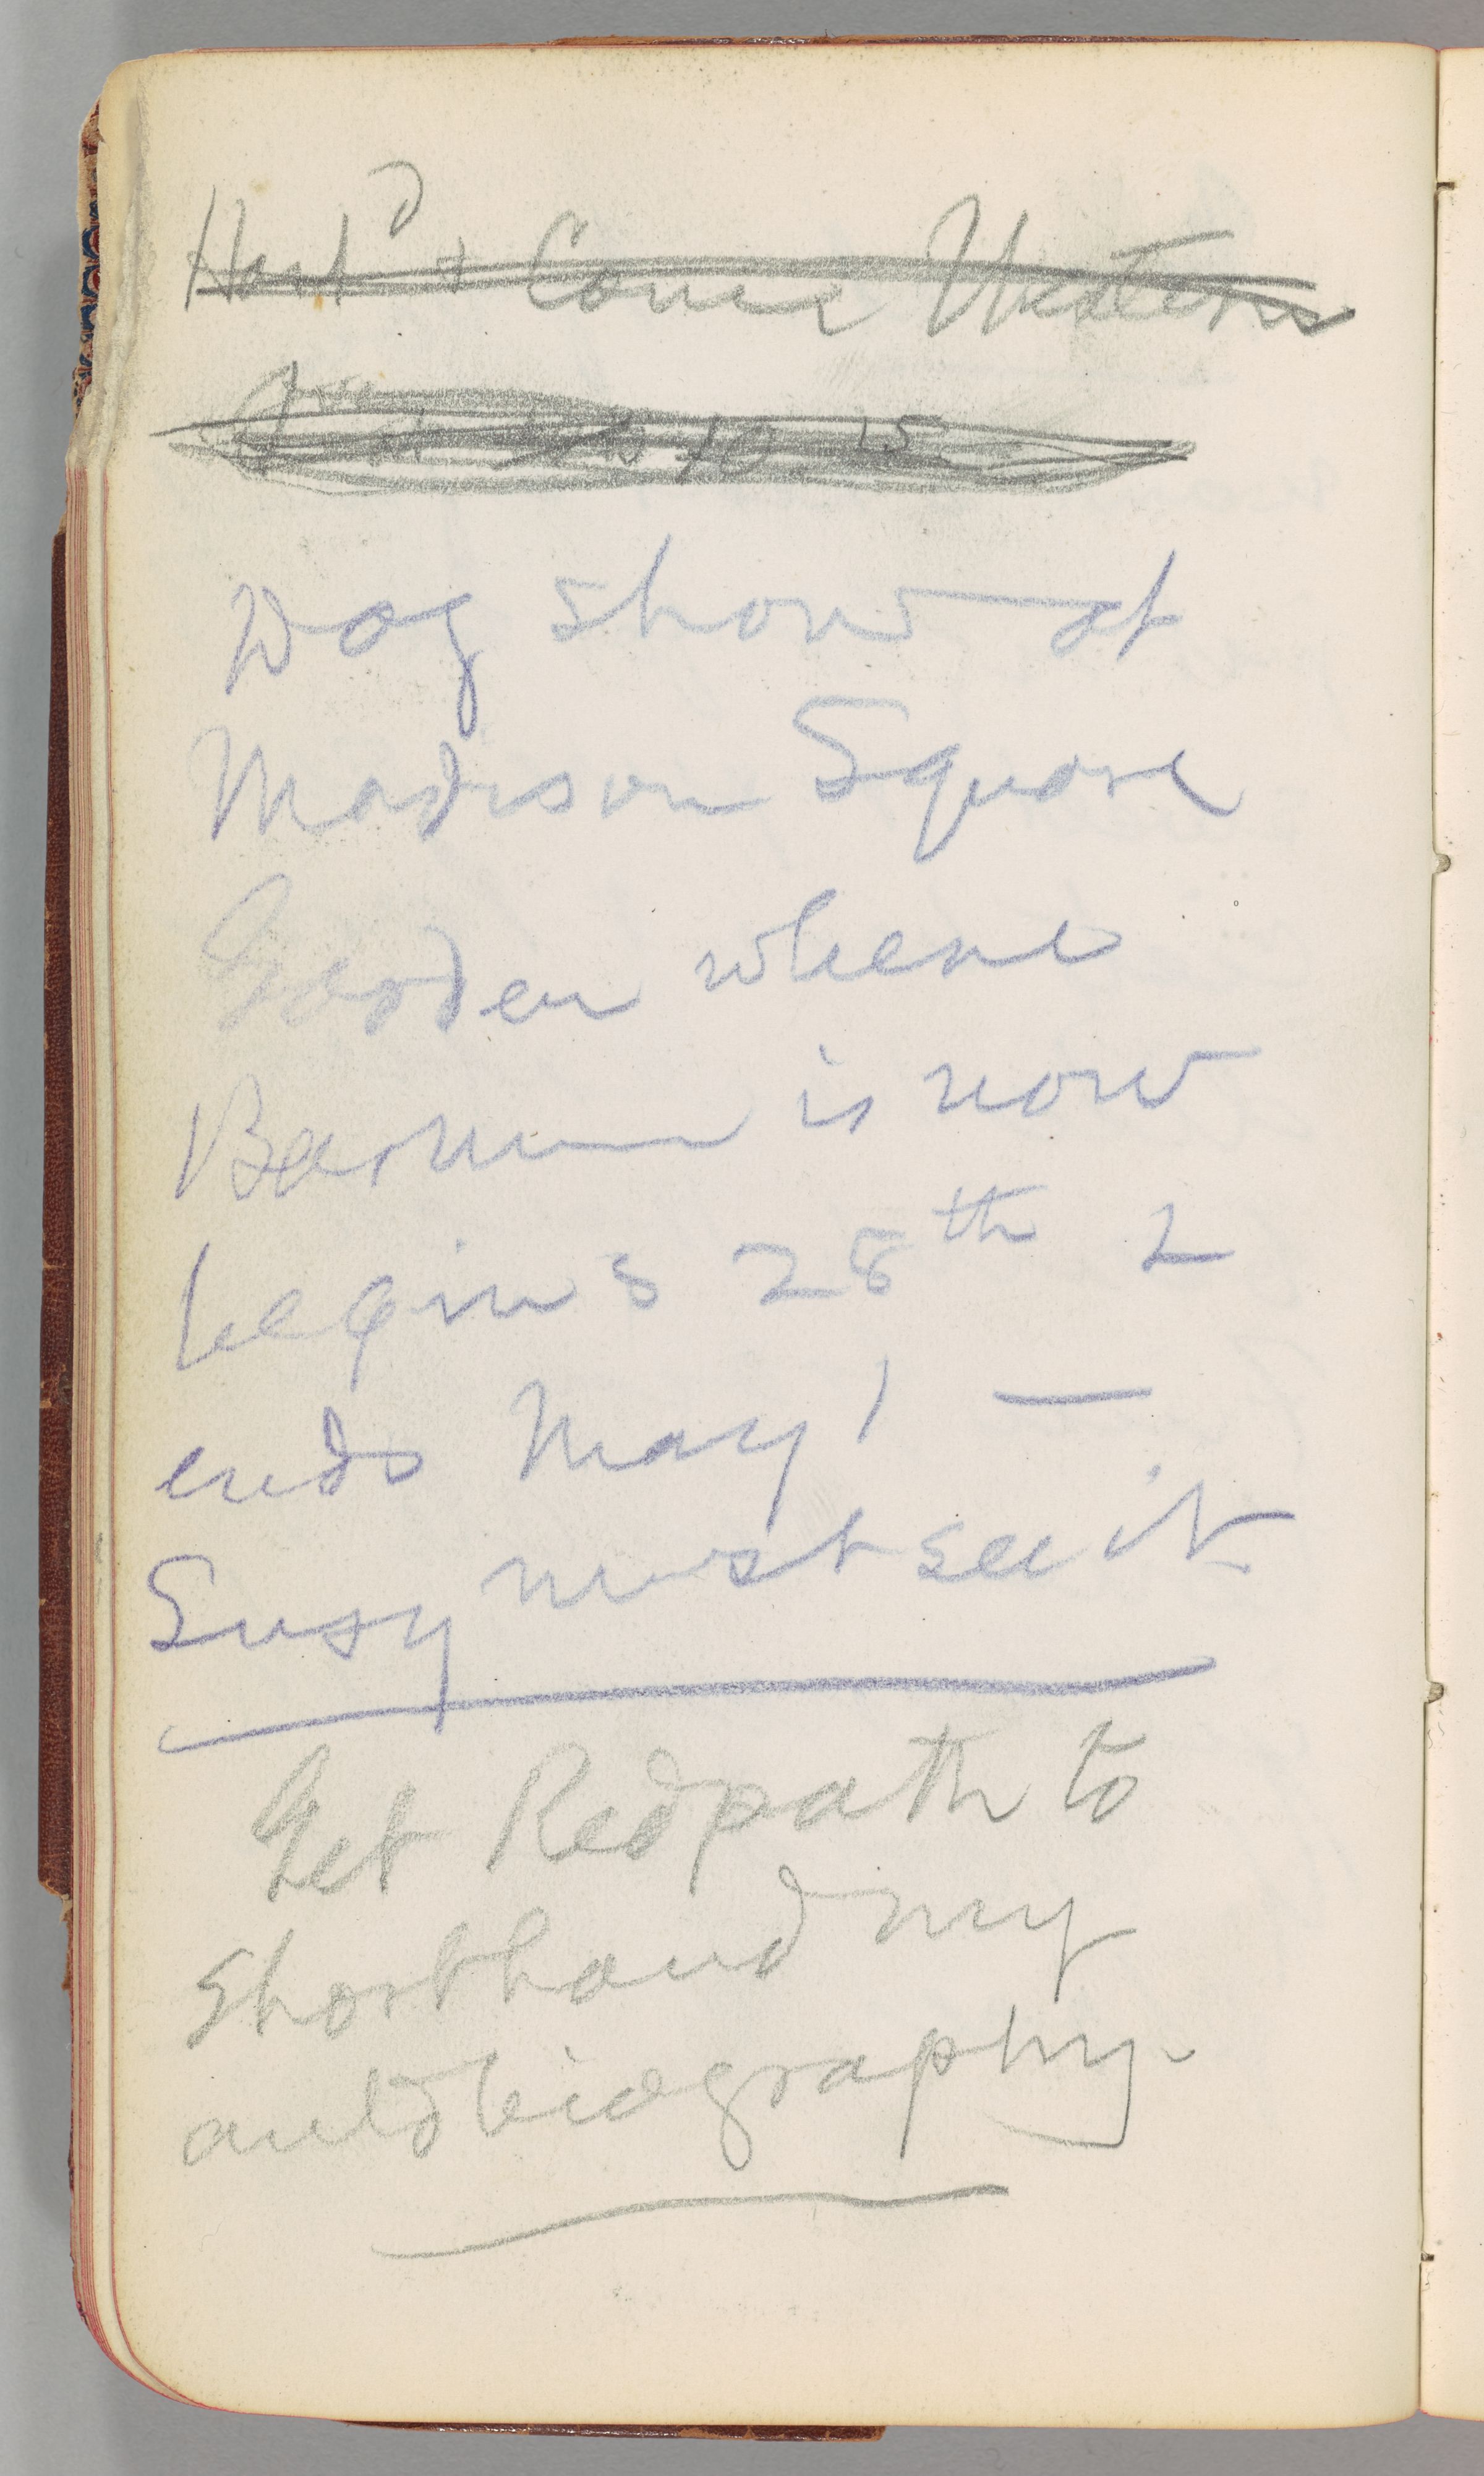 Hartd & Conn Western
10.15
Dog show at
Madison Square
Garden where
Barnum is now
begins 28th &
ends May 1 —
Susy must see it
Get Redpath to
shorthand my
autobiography.